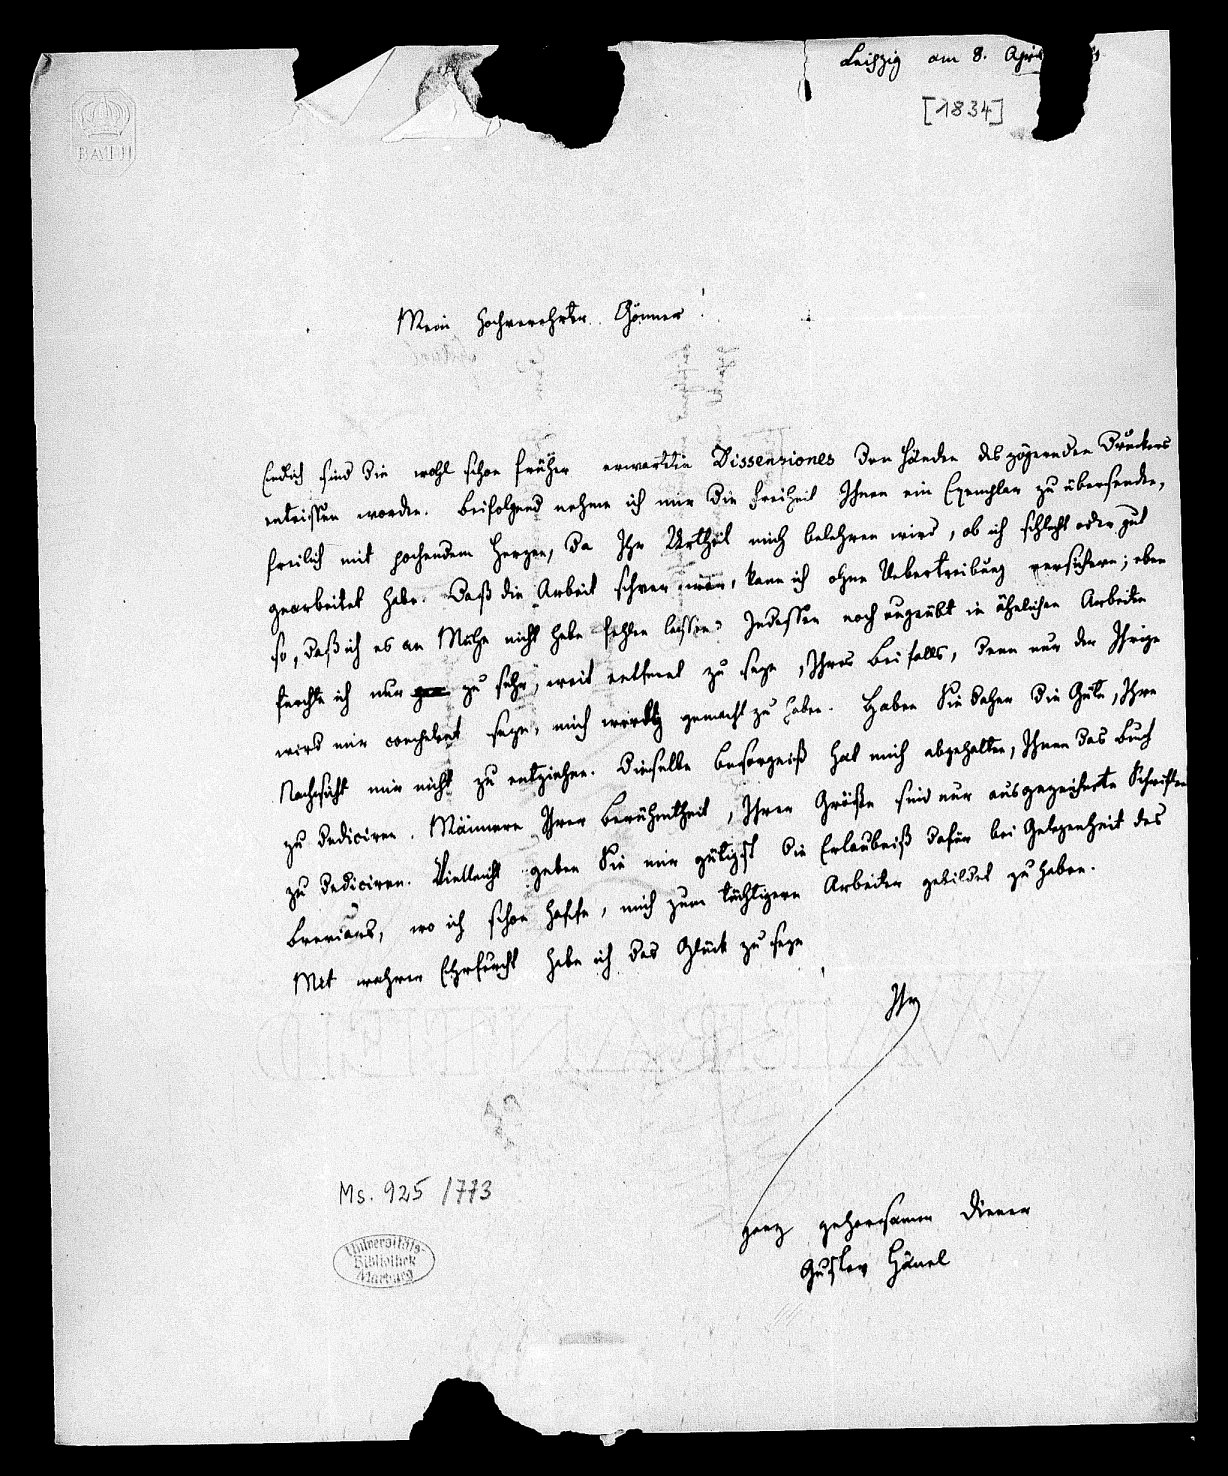 Leipzig am 8. Apri
[1834]
BATH
Mein hochverehrter Gönner!
Endlich sind die wohl schon früher erwarteten Dissensiones den Händen des zögernden Druckers
entrissen worden. Beifolgend nehme ich mir die Freiheit Ihnen ein Exemplar zu übersenden,
freilich mit pochendem Herzen, da Ihr Urtheil mich belehren wird, ob ich schlecht oder gut
gearbeitet habe. Daß die Arbeit schwer war, kann ich ohne Uebertreibung versichern; eben
so, daß ich es an Mühe nicht habe fehlen lassen. Indessen noch ungeübt in ähnlichen Arbeiten
fürchte ich nur zu sehr, weit entfernt zu seyn, Ihres Beifalls, denn nur der Ihrige
wird mir competent seyn, mich würdig gemacht zu haben. Haben Sie daher die Güte, Ihre
Nachsicht mir nicht zu entziehen. Dieselbe Besorgniß hat mich abgehalten, Ihnen das Buch
zu dediciren. Männern Ihrer Berühmtheit, Ihrer Größe sind nur ausgezeichnete Schriften
zu dediciren. Vielleicht geben Sie mir gütigst die Erlaubniß dafür bei Gelegenheit des
Breviars, wo ich schon hoffe, mich zum tüchtigern Arbeiter gebildet zu haben.
Mit wahrer Ehrfurcht habe ich das Glück zu seyn
Ihr
ganz gehorsamer Diener
Gustav Hänel
Ms. 925/773
Universitäts-
Bibliothek
Marburg